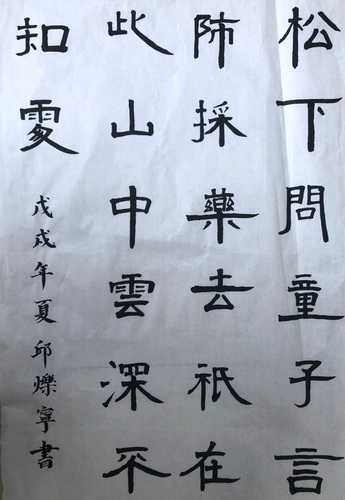 松下問童子言
師採藥去祇在
此山中雲深不
知處
戊戌年夏邱爍寧書